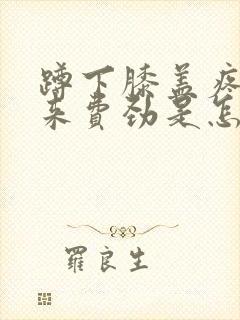 蹲下膝盖疼
来费劲是怎
羅良生